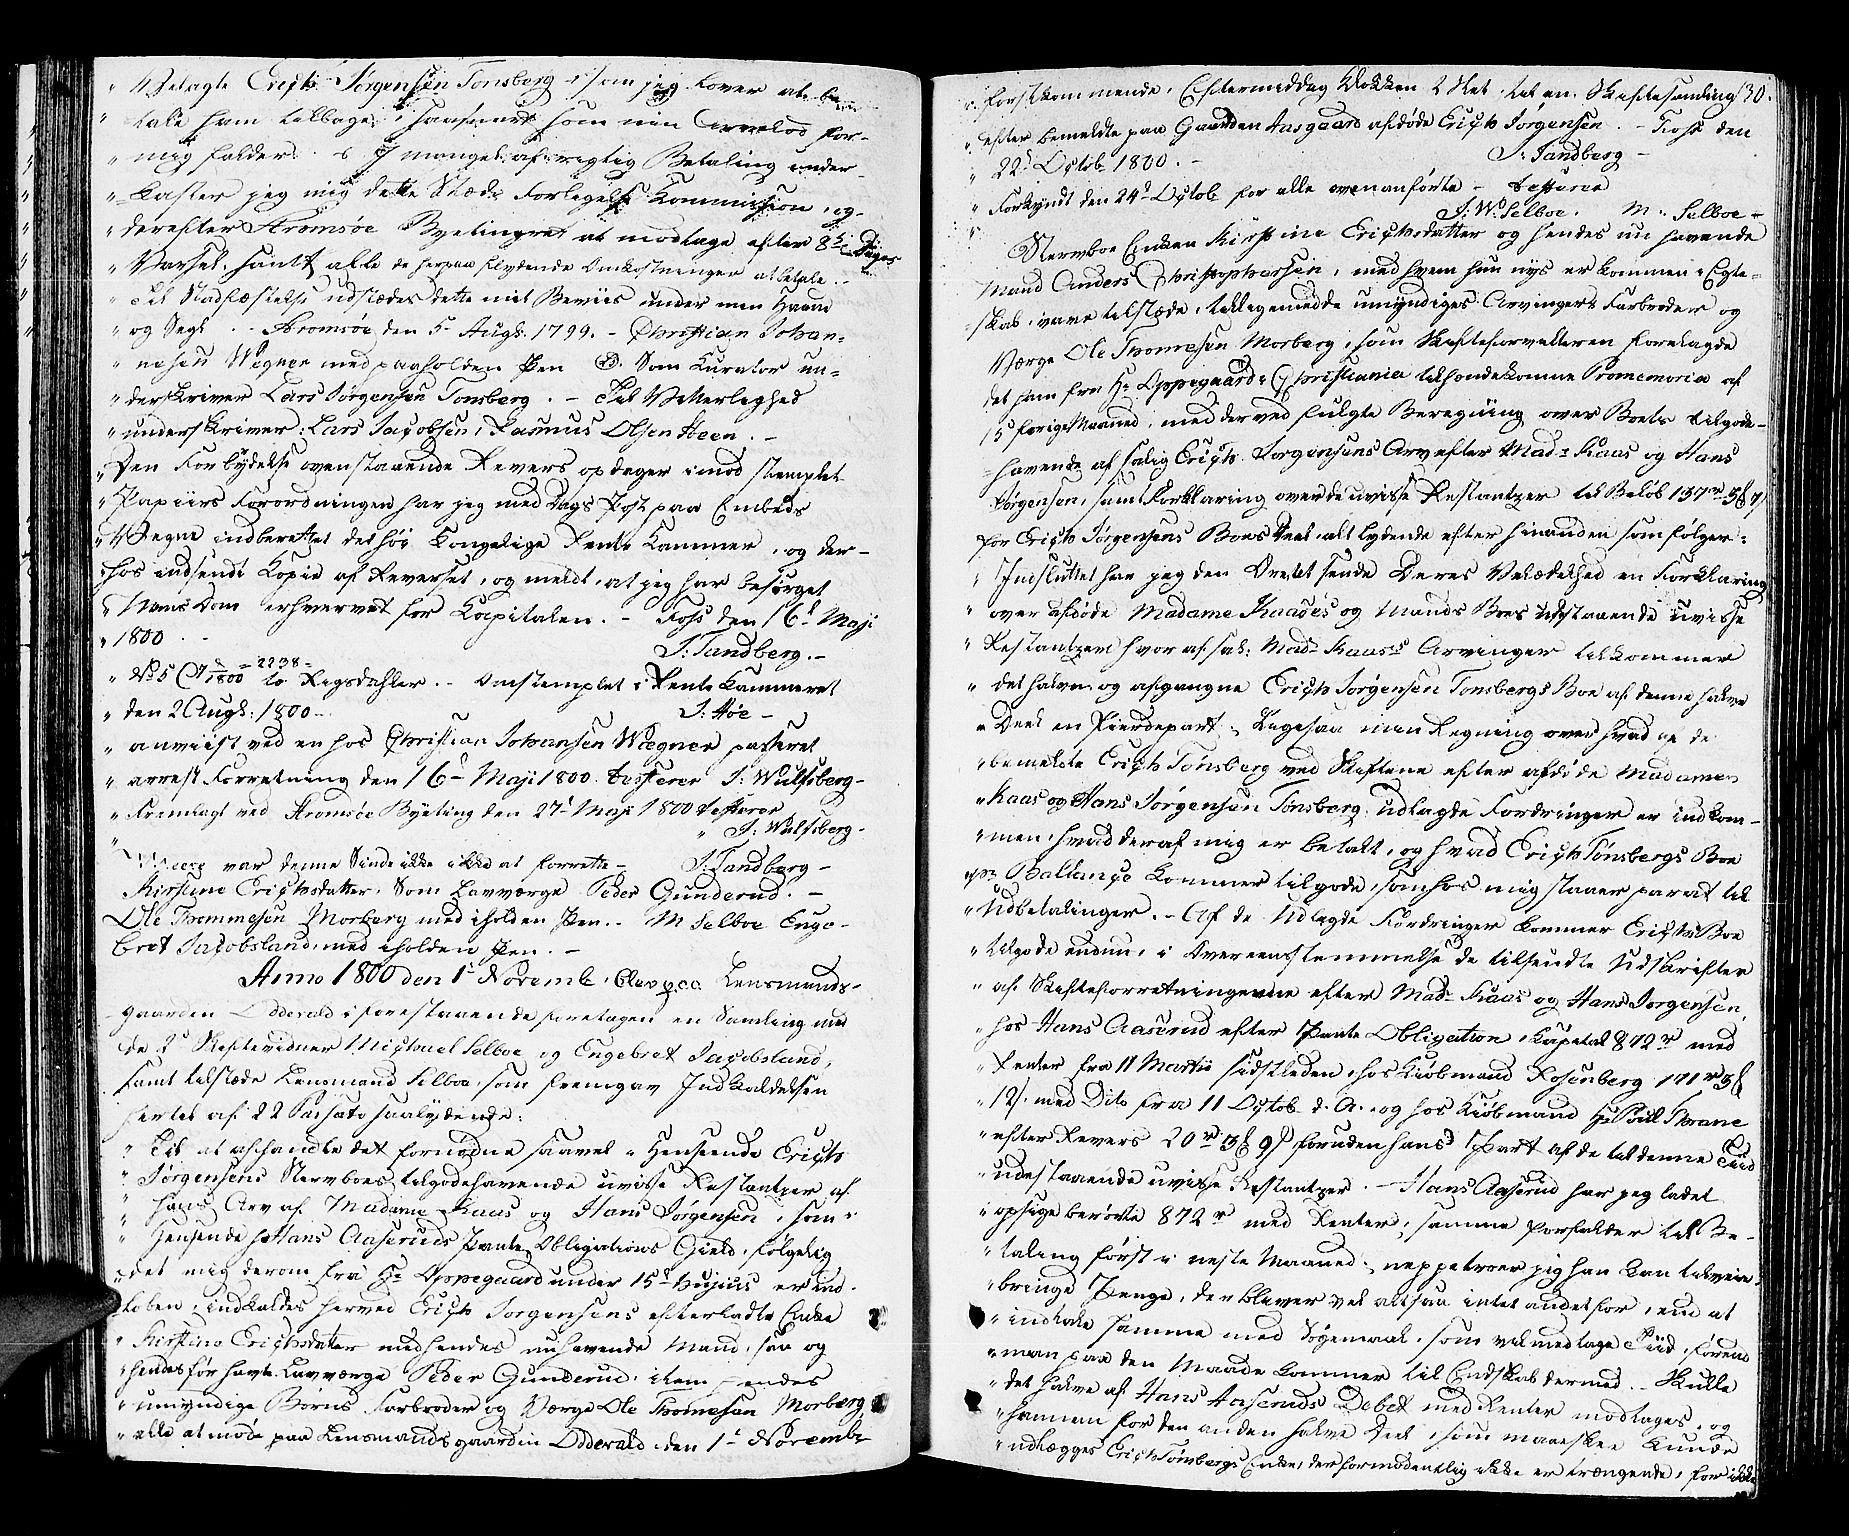 " Velagte Erich Jørgensen Tonsberg, som jeg lover at be-
" tale ham tilbage, saasnart som min Arvelod for-
" mig falder. I mangel af rigtig Betaling under-
" kaster jeg mig dette Stæds Forligelse Kommission, og
" derefter Stromsøe Byetingret at modtage efter 8te Dages
" Varsel, samt alle de herpaa flydende Omkostninger at betale. -
" Til Stadfæstelse udstædes dette mit Beviis under min Haand
" og Segl. - Stromsøe den 5t Augs. 1799. - Christian Johan-
" nesen Wegner med paaholden Pen. Som Kurator un-
" derskriver Lars Jørgensen Tonsberg. - Til Vitterlighed
" underskriver: Lars Jacobsen, Rasmus Olsen Steen. -
" Den Forbrydelse ovenstaaende Revers opdager imod stemplet
" Papiirs Forordningen har jeg med Dags Post paa Embeds
" Vegne indberettet det høy Kongelige Rente Kammer, og der-
" hos indsendt Kopie af Reverset, og meldt, at jeg har besørget
" Nams Dom erhvervet for Kapitalen. - Foss den 16d Maji
" 1800. - J: Tandberg. -
" No 5 - 2238 - 1800 to Rigsdahler. - Omstemplet i Rente Kammeret
" den 2 Augs: 1800 - J: Høe -
" anviist ved en hos Christian Johansen Wægner passeret
" arrest Forretning den 16d Maji 1800. testerer J: Wulfsberg -
" Fremlagt ved Stromsøe Byeting den 27d Maji 1800 testerer
" J: Wulfsberg -
Meere var denne Sinde ikke at forrette - J: Tandberg -
Kirstine Erichsdatter. Som Lavværge Peder Gunderud. -
Ole Thommesen Morberg med iholden Pen. - M Selboe Enge-
bret Jacobsland med iholden Pen. -
Anno 1800 den 1d Novembr. blev paa Lensmands-
gaarden Odderald i forestaaende foretagen en Samling med
de 2de Skiftevidner Michael Selboe og Engebret Jacobsland,
samt tilstæde Lensmand Selboe, som fremgav Indkaldelsen
hertil af 22 Passato saalydende:
" Til at afhandle det fornødne saavel i Henseende Erich
" Jørgensens Stervboes tilgodehavende uvisse Restantzer af
" hans Arv af Madame Kaas og Hans Jørgensen, som i
" Henseende Hans Aaseruds Pante Obligations Gield, følgelig
" det mig derom fra Hr Oppegaard under 15d hujus er ind-
løben, indkaldes herved Erich Jørgensens efterladte Enke
" Kirstine Erichsdatter med hendes nuhavende Mand, saa og
" hendes før havte Lavværge Peder Gunderud, item hendes
" umyndige Børns Farbroder og Værge Ole Thomesen Morberg
" alle at møde paa Lensmandsgaarden Odderald den 1d Novembr
forstkommende, Eftermiddag Klokken 2 Slet til en Skiftesamling 130.
" efter bemeldte paa Gaarden Aasgaard afdøde Erich Jørgensen. - Foss den
" 22d Octobr 1800. - J: Tandberg -
" Forkyndt den 24d Octob for alle ovenanførte - testerer
" J. W. Selboe. M. Selboe -
Stervboe Enken Kirstine Erichsdatter og hendes nu havende
Mand Anders Christophersen, med hvem hun nys er kommen i Egte-
skab, vare tilstæde, tilligemed de umyndiges Arvingers Farbroder og
Værge Ole Thomesen Morberg, som Skifteforvalteren forelagde
det ham fra Hr Oppegaard i Christiania tilhændekomne Promemoria af
15d forige Maaned, med derved fulgte Beregning over Boets tilgode-
havende af salig Erich Jørgensens Arv efter Madm Kaas og Hans
Jørgensen, samt Forklaring over de uvisse Restantzer til Beløb 137r 3f 7s
for Erich Jørgensens Boes Deel alt lydende efter hinanden som følger:
" Indsluttet har jeg den Ære at sende Deres Velædelhed en Forklaring
" over afdøde Madame Kaases og Mands Boes udestaaende uvisse
" Restantzer hvoraf sal: Madm Kaases Arvinger tilkommer
" det halve og afgangne Erich Jørgensen Tonsbergs Boe af denne halve
" Deel en Fierdepart, Ligesaa min Regning over hvad af de
" bemeldte Erich Tonsberg ved Skiftene efter afdøde Madame
" Kaas og Hans Jørgensen Tønsberg udlagde Fordringer er indkom-
" men, hvad deraf mig er betalt, og hvad Erich Tønsbergs Boe
" pr Ballance kommer tilgode, som hos mig staaer parat til
" Udbetalinger. - Af de Udlagde Fordringer kommer Erichs Boe
" tilgode endnu, i Overeenstemmelse de tilsendte Udskrifter
" af Skifteforretningerne efter Madm Kaas og Hans Jørgensen,
" hos Hans Aaserud efter Pante Obligation, Capital 872r med
" Renter fra 11 Martii sidstleden, hos Kiøbmand Rosenberg 171r 3f
" 12s. med Dito fra 11 Octob. d. A. og hos Kiøbmand Hr Poul Thrane
" efter Revers 20r 3f 9s foruden hans Part af de til denne Tiid
" udestaaende uvisse Restantzer. - Hans Aaserud har jeg ladet
" opsige berørte 872r med Renter, samme forfalder til Be-
" taling først i neste Maaned, neppe troer jeg han kan tilveie-
" bringe Penge, der bliver vel altsaa intet andet for, end at
" indtale samme med Søgemaal, som vil medtage Tiid, førend
" man paa den Maade kommer til Endskab dermed. - Skulle
" det halve af Hans Aaseruds Debet med Renter modtages, og
" hannem for den anden halve Deel, som maaskee kunde
" udlægges Erich Tønsbergs Enke, der formodentlig ikke er trængende, for ikke